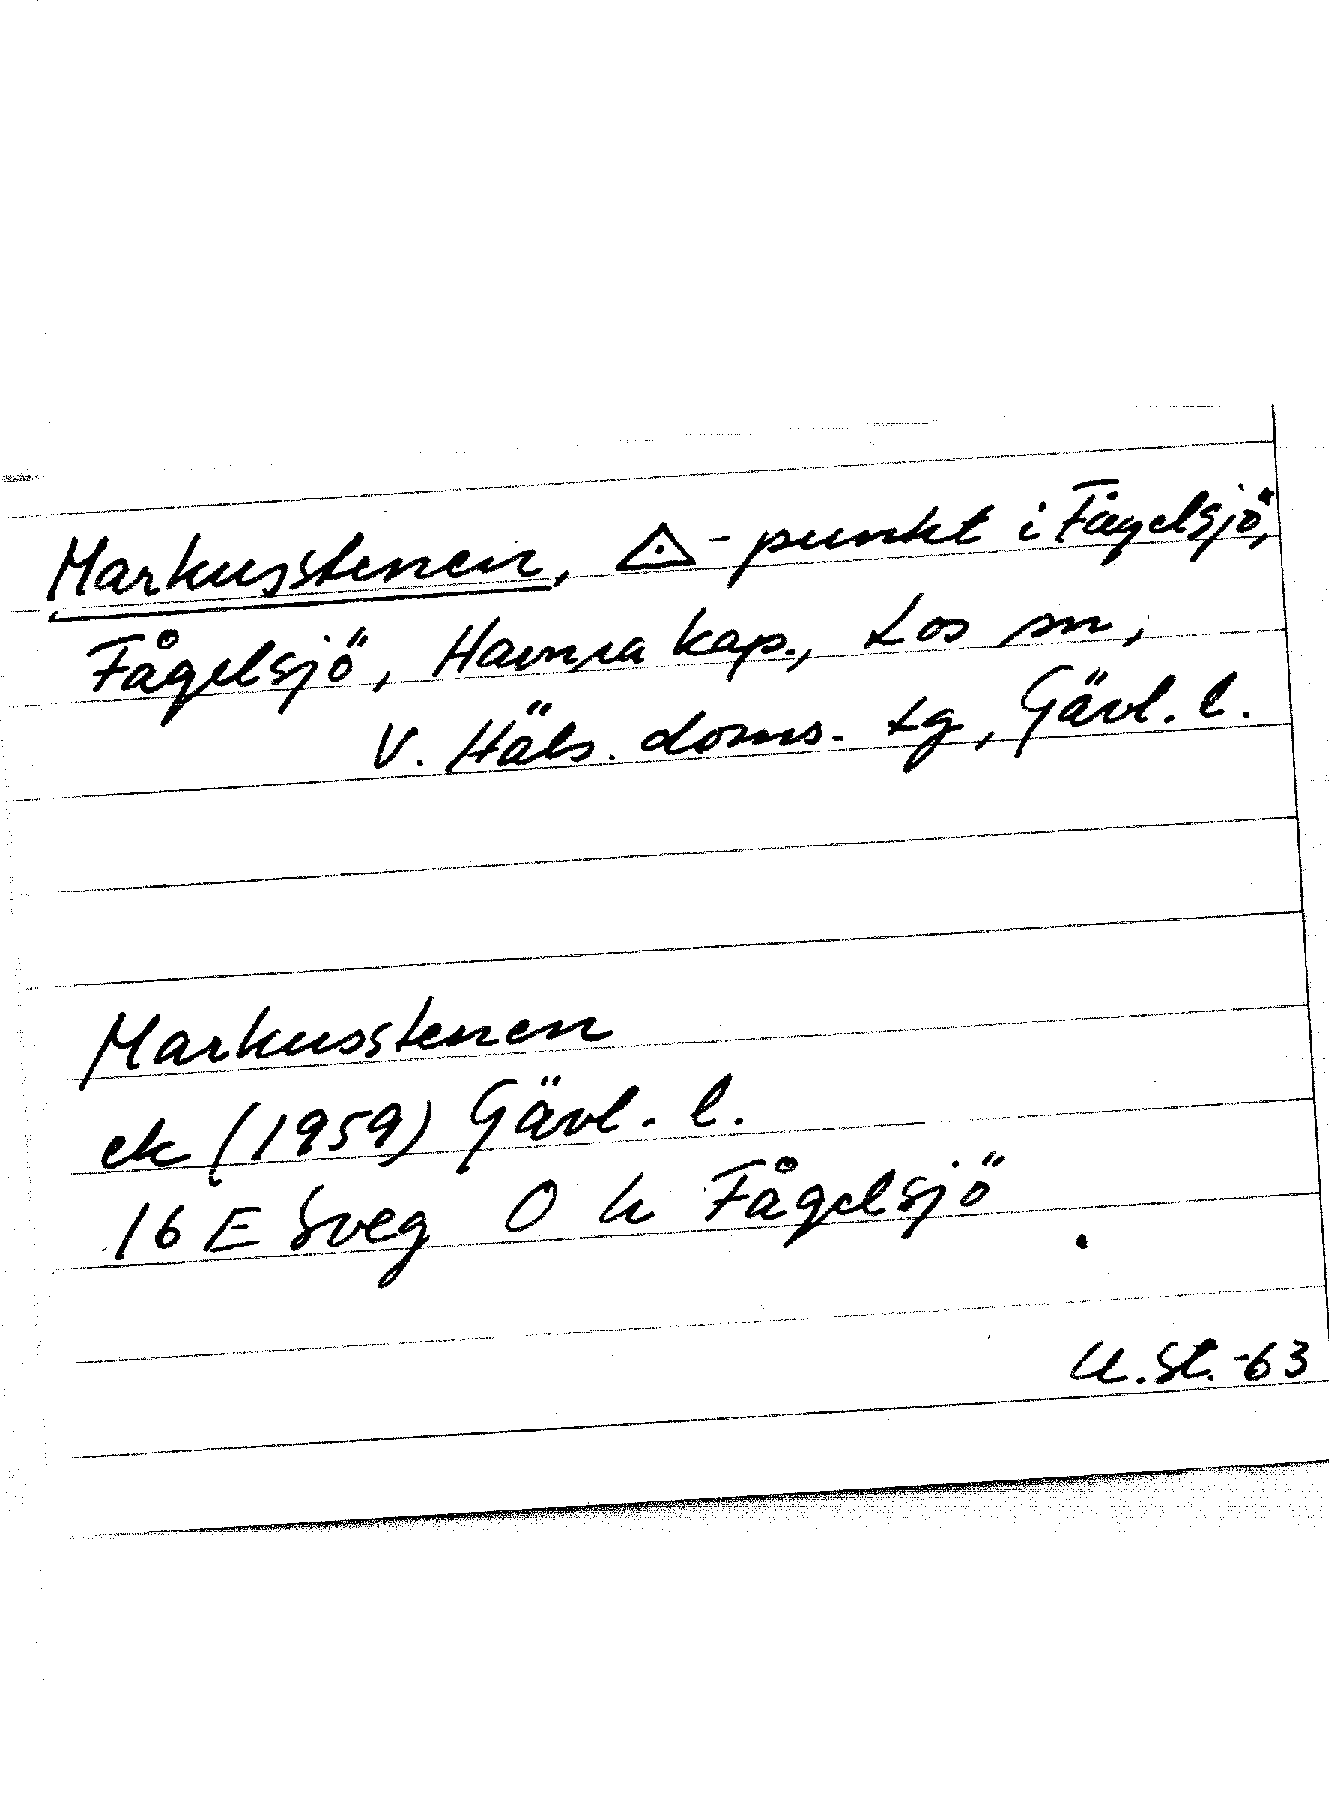 Markusstenen, △-punkt i Fågelsjö,
Fågelsjö, Hamra kap., Los sn,
V. Häls. doms. tg, Gävl. l.
Markusstenen
ek (1959) Gävl. l.
16 E Sveg O h Fågelsjö
U.St.-63